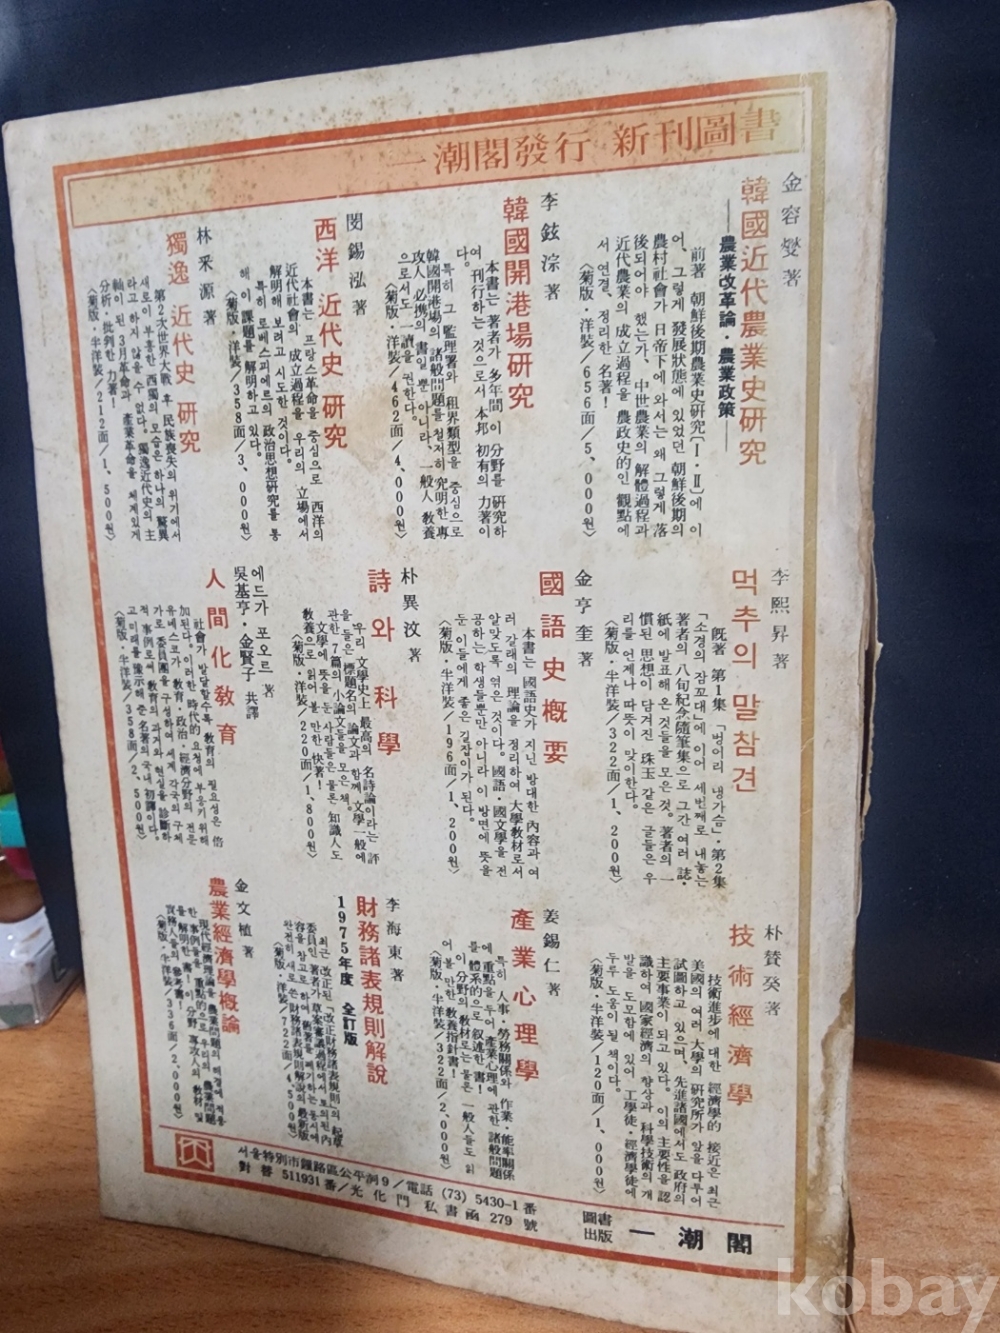 一潮閣發行 新刊圖書
金容燮著
韓國近代農業史硏究
——農業改革論·農業政策——
前著 朝鮮後期農業史硏究〔Ⅰ·Ⅱ〕에 이
어, 그렇게 發展狀態에 있었던 朝鮮後期의
農村社會가 日帝下에 와서는 왜 그렇게 落
後되어야 했는가, 中世農業의 解體過程과
近代農業의 成立過程을 農政史的인 觀點에
서 연결, 정리한 名著!
〈菊版·洋裝/656面/5,000원〉
李鉉淙著
韓國開港場硏究
本書는 著者가 多年間 이 分野를 硏究하
여 刊行하는 것으로서 本邦 初有의 力著이
다.
특히 그 監理署와 租界類型을 중심으로
韓國開港場의 諸般問題를 철저히 究明한 專
攻人 必携의 書일 뿐 아니라, 一般人 敎養
으로서도 一讀을 권한다.
〈菊版·洋裝/462面/4,000원〉
閔錫泓著
西洋 近代史 硏究
本書는 프랑스革命을 중심으로 西洋의
近代社會의 成立過程을 우리의 立場에서
解明해 보려고 시도한 것이다.
특히 로베스피에르의 政治思想硏究를 통
해 이 課題를 解明하고 있다.
〈菊版·洋裝/358面/3,000원〉
林采源著
獨逸 近代史 硏究
第2次世界大戰 후 民族喪失의 위기에서
새로이 부흥한 西獨의 모습은 하나의 驚異
라고 하지 않을 수 없다. 獨逸近代史의 主
軸이 된 3月革命과 産業革命을 체계있게
分析·批判한 力著!
〈菊版·半洋裝/212面/1,500원〉
李熙昇著
먹추의 말참견
旣著 第1集 「벙어리 냉가슴」·第2集
「소경의 잠꼬대」에 이어 세번째로 내놓는
著者의 八旬紀念隨筆集으로 그간 여러 誌·
紙에 발표해 온 것들을 모은 것. 著者의 一
慣된 思想이 담겨진 珠玉같은 글들은 우
리를 언제나 따뜻이 맞이한다.
〈菊版·半洋裝/322面/1,200원〉
金亨奎著
國語史槪要
本書는 國語史가 지닌 방대한 內容과 여
러 갈래의 理論을 정리하여 大學敎材로서
알맞도록 엮은 것이다. 國語·國文學을 전
공하는 학생들뿐만 아니라 이 방면에 뜻을
둔 이들에게 좋은 길잡이가 된다.
〈菊版·半洋裝/196面/1,200원〉
朴異汶著
詩와 科學
「우리 文學史上 最高의 名詩論이라는 評
을 들은 標題名의 論文과 함께, 文學一般에
관한 7篇의 小論文들을 모은 책.
文學에 뜻을 둔 사람들은 물론 知識人도
敎養으로 읽어 볼 만한 快著!
〈菊版·洋裝/220面/1,800원〉
에드가 포오르 著
吳基亨·金賢子 共譯
人間化敎育
社會가 발달할수록 敎育의 필요성은 倍
加된다. 이러한 時代的 요청에 부응키 위해
유네스코가 敎育·政治·經濟分野의 전문
가로 委員團을 구성하여 세계 각국의 구체
적 事例로써 敎育의 과거와 현실을 診斷하
고 미래를 豫示해 준 名著의 국내 初譯이다.
〈菊版·半洋裝/358面/2,500원〉
朴贊癸著
技術經濟學
技術進步에 대한 經濟學的 接近은 최근
美國의 여러 大學의 硏究所가 앞을 다투어
試圖하고 있으며, 先進諸國에서도 政府의
主要事業이 되고 있다. 이의 主要性을 認
識하여 國家經濟의 향상과 科學技術의 개
발을 도모함에 있어 工學徒·經濟學徒에
두루 도움이 될 책이다.
〈菊版·半洋裝/120面/1,000원〉
姜錫仁著
産業心理學
특히 人事·勞務關係와 作業·能率關係
에 重點을 두어 産業心理에 관한 諸般問題
를 體系的으로 叙述한 書!
이 分野의 敎材로는 물론 一般人들도 읽
어 볼 만한 敎養指針書!
〈菊版·半洋裝/322面/2,000원〉
李海東著
財務諸表規則解說
1975年度 全訂版
최근 改正된 「改正財務諸表規則의 起草
委員인 著者가 草案審議過程에서 토의된 內
容을 참고로 하여 舊著를 폐기하는 동시에
완전히 새로 쓴 財務諸表規則解說의 最新版
〈菊版·洋裝/722面/4,500원〉
金文植著
農業經濟學槪論
現代經濟理論을 農業問題의 해명에 적용
한 事例를 重點的으로 우리의 農業問題
를 解明한 書! 이 分野 專攻人의 敎材 및
實務人들의 參考書!
〈菊版·半洋裝/336面/2,000원〉
서울特別市鍾路區公平洞9/電話 (73) 5430~1番
對替 511931番/光化門 私書函 279 號
圖書出版 一潮閣
kobay